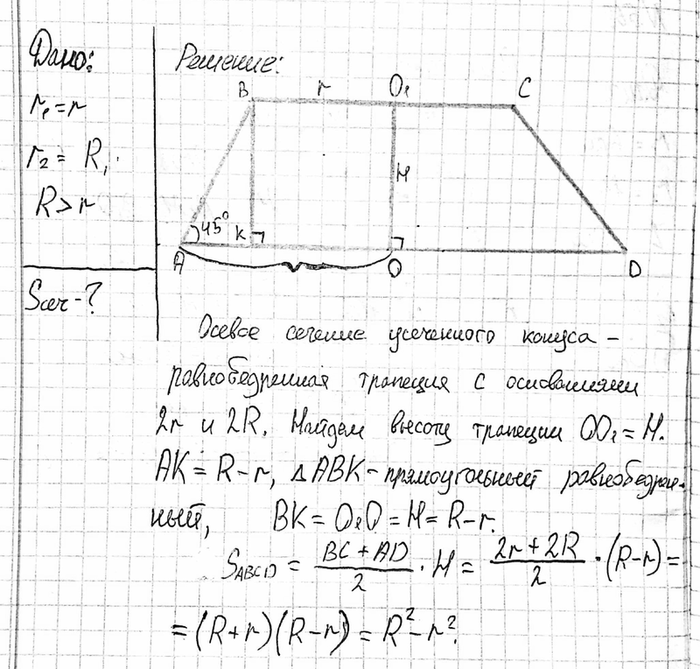 Дано:
r₁ = r
r₂ = R,
R > r
Sсеч - ?
Решение:
B r O₁ C
H
45° K
A O D
Осевое сечение усеченного конуса –
равнобедренная трапеция с основаниями
2r и 2R. Найдем высоту трапеции OO₁ = H.
AK = R – r, △ABK – прямоугольный равнобедрен-
ный, BK = O₁O = H = R – r.
S_ABCD = (BC + AD)/2 · H = (2r + 2R)/2 · (R – r) =
= (R + r)(R – r) = R² – r².